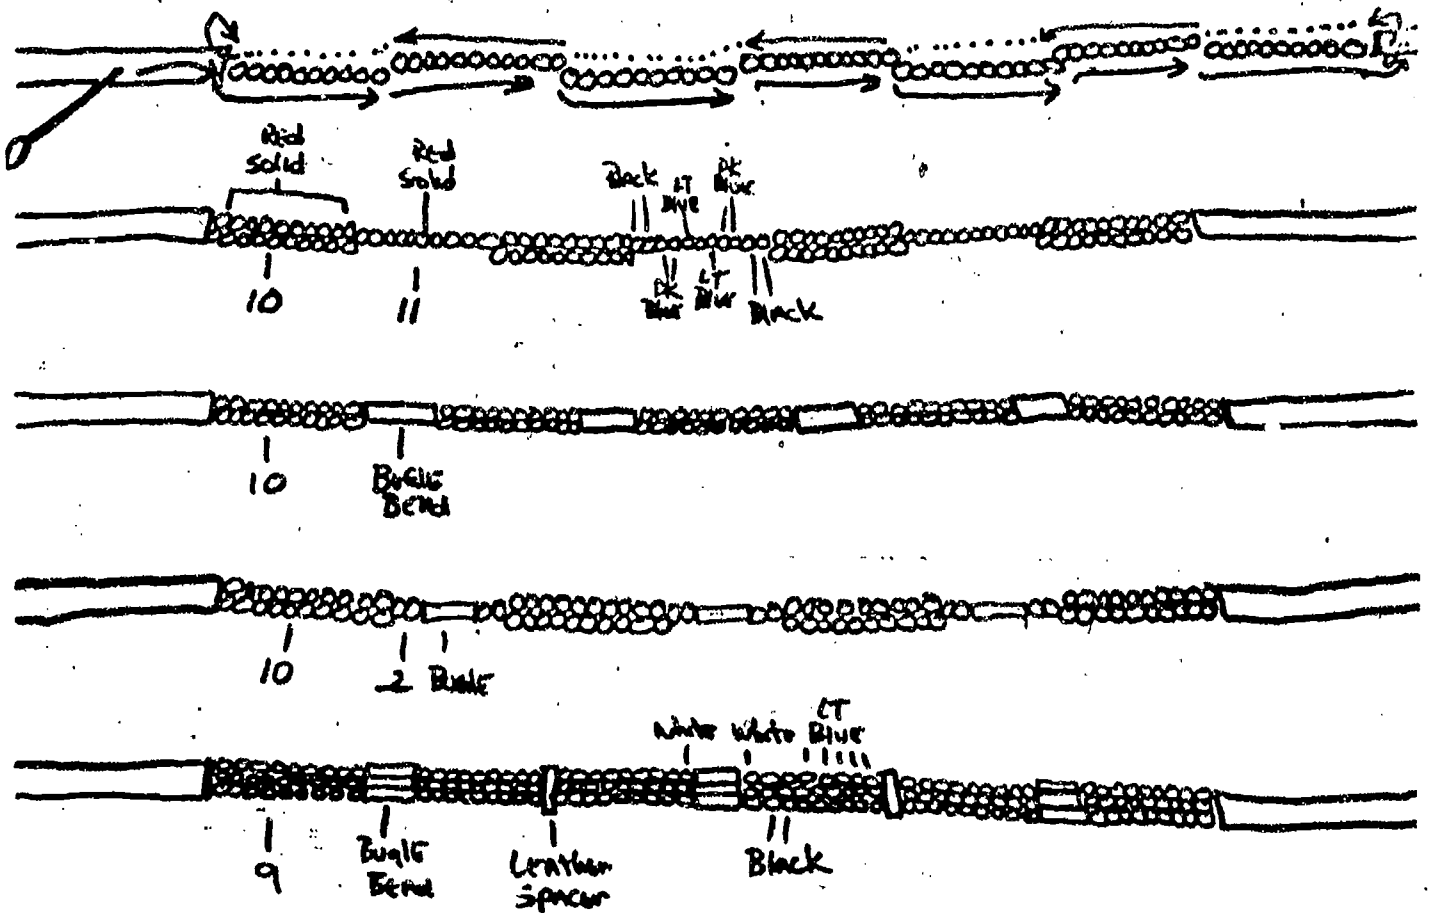 Red
Solid
Red
Solid
Black
LT
Blue
DK
Blue
10
11
DK
Blue
LT
Blue
Black
10
Bugle
Bead
10
2
Bugle
White
White
LT
Blue
9
Bugle
Bead
Leather
Spacer
Black